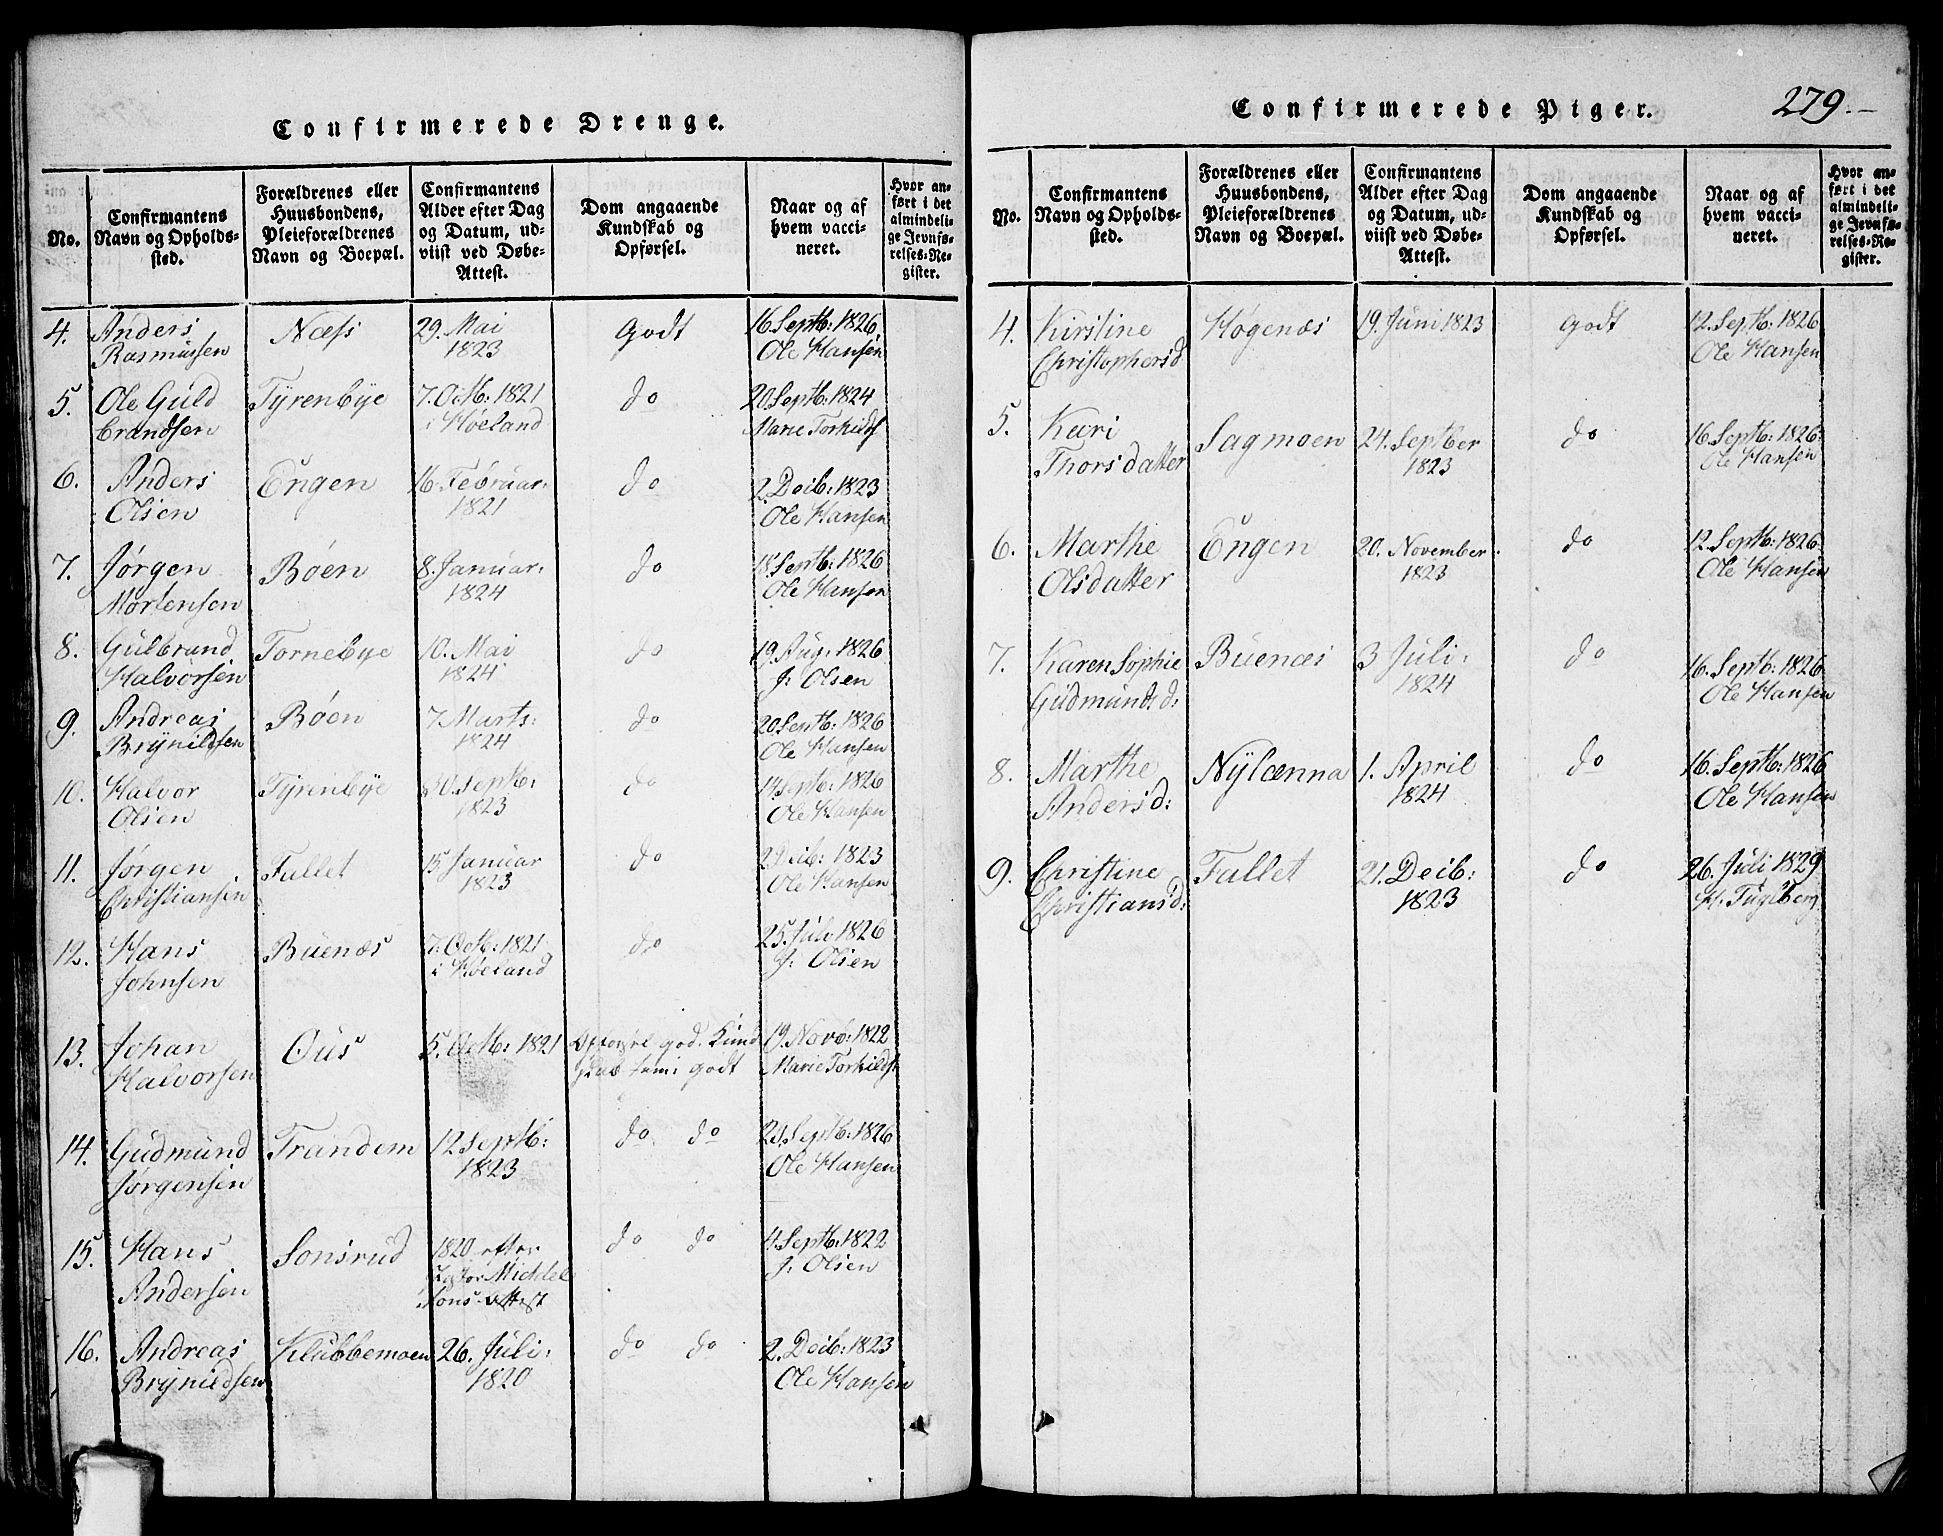 Confirmerede Drenge.
No.
Confirmantens
Navn og Opholds-
sted.
Forældrenes eller
Huusbondens,
Pleieforældrenes
Navn og Boepæl.
Confirmantens
Alder efter Dag
og Datum, ud-
viist ved Døbe-
Attest.
Dom angaaende
Kundskab og
Opførsel.
Naar og af
hvem vacci-
neret.
Hvor an-
ført i det
almindeli-
ge Jevnfø-
relses-Re-
gister.
4. Anders Næss 29. Mai Godt 16 Septb: 1826
Rasmussen 1823 Ole Hansen
5. Ole Guld Tyrenbye 7. Octb: 1821 do 20 Septb: 1824
brandsen i Høeland Marie Torkilds
6. Anders Engen 16 Februar: do 2. Decb: 1823
Olsen 1821 Ole Hansen
7. Jørgen Bøen 8. Januar: do 18 Septb: 1826
Mortensen 1824 Ole Hansen
8. Gulbrand Tornebye 10. Mai do 19 Aug: 1826
Halvorsen 1824 J: Olsen
9. Andreas Bøen 7 Marts: do 20 Septb: 1826
Brynildsen 1824 Ole Hansen
10. Halvor Tyrenbye 30. Septb: do 14 Septb: 1826
Olsen 1823 Ole Hansen
11. Jørgen Fallet 15 Januar do 2 Decb: 1823
Christiansen 1823 Ole Hansen
12. Hans Buenæs 7. Octb: 1821 do 25. Juli 1826
Johnsen i Høeland J: Olsen
13. Johan Ous 5. Octb: 1821 Opførsel god. Kund 19. Novb: 1822
Halvorsen skab temi godt Marie Torkilds:
14. Gudmund Trandem 12 Septb: do do 21 Septb: 1826
Jørgensen 1823 Ole Hansen
15. Hans Sonsrud 1820 efter do do 4 Septb: 1822
Pastor Michel J: Olsen
Andersen sons Attest
16. Andreas Klubbemoen 26. Juli: do do 2. Decb: 1823
Brynildsen 1820 Ole Hansen
Confirmerede Piger. 279.
No.
Confirmantens
Navn og Opholds-
sted.
Forældrenes eller
Huusbondens,
Pleieforældrenes
Navn og Boepæl.
Confirmantens
Alder efter Dag
og Datum, ud-
viist ved Døbe-
Attest.
Dom angaaende
Kundskab og
Opførsel.
Naar og af
hvem vacci-
neret.
Hvor an-
ført i det
almindeli-
ge Jevnfø-
relses-Re-
gister.
4. Kirstine Høgenæs 19. Juni 1823 Godt 12. Septb: 1826
Christophersd Ole Hansen
5. Kari Sagmoen 24. Septber do 16. Septb: 1826
Thorsdatter 1823 Ole Hansen
6. Marthe Engen 20. November do 12. Septb: 1826
Olsdatter 1823 Ole Hansen
7. Karen Sophie Buenæs 3 Juli: do 16 Septb: 1826
Gudmundsd: 1824 Ole Hansen
8. Marthe Nylænna 1. April do 16. Septb: 1826
Andersd: 1824 Ole Hansen
9. Christine Fallet 21. Decb: do 26. Juli 1829
Christiansd: 1823 H. Fuglberg